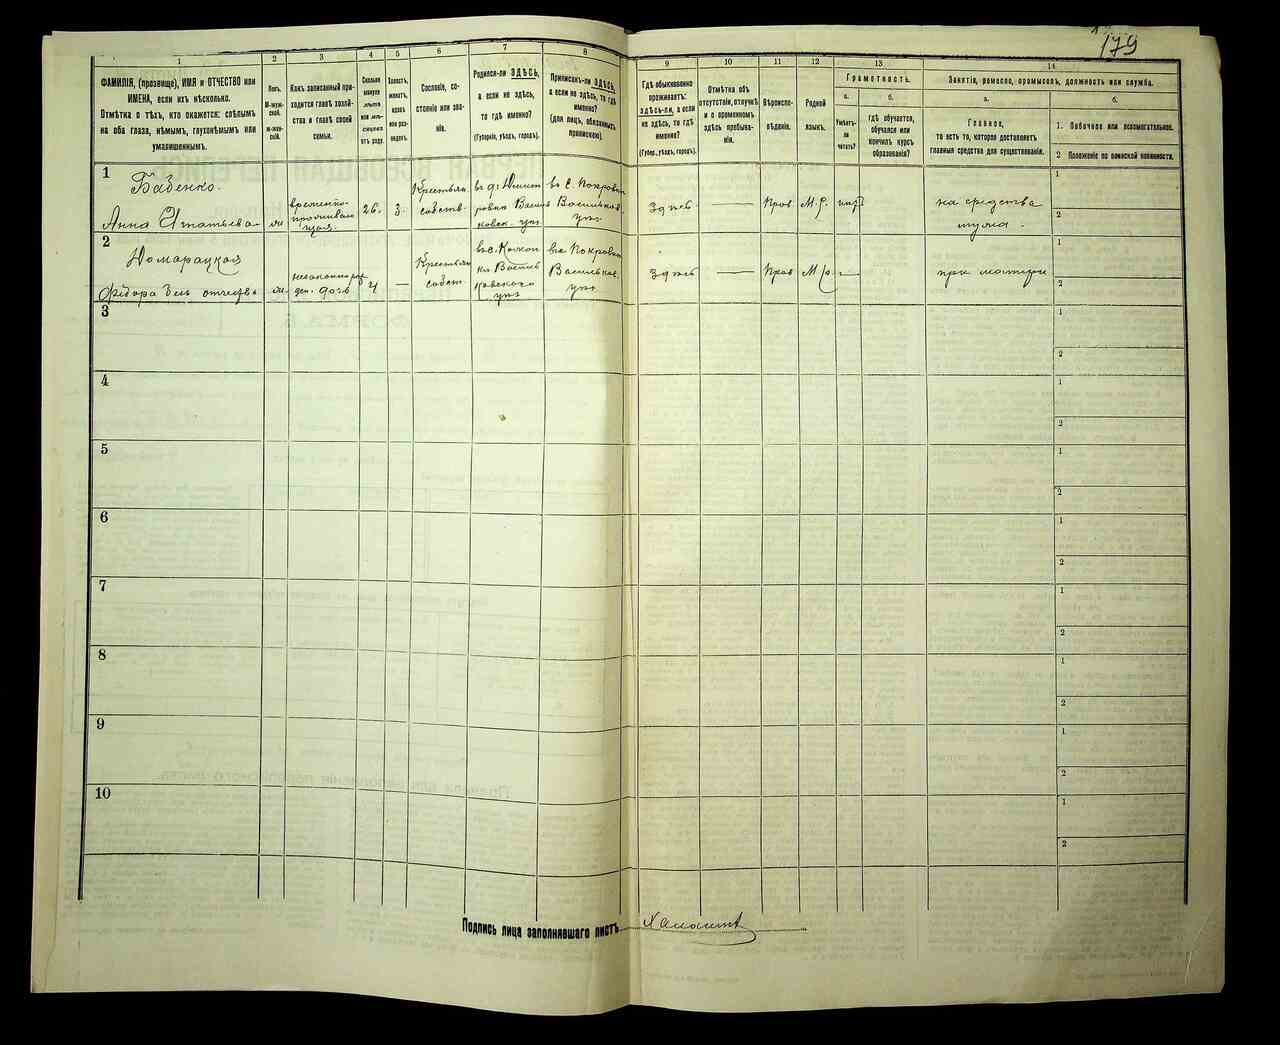 179
1
2
3
4
5
6
7
8
9
10
11
12
13
14
ФАМИЛІЯ, (прозвище), ИМЯ и ОТЧЕСТВО или
ИМЕНА, если ихъ нѣсколько.
Отмѣтка о тѣхъ, кто окажется: слѣпымъ
на оба глаза, нѣмымъ, глухонѣмымъ или
умалишеннымъ.
Полъ.
М-муж-
ской.
ж-жен-
скій.
Какъ записанный при-
ходится главѣ хозяй-
ства и главѣ своей
семьи.
Сколько
минуло
лѣтъ
или мѣ-
сяцевъ
отъ роду.
Холостъ,
женатъ,
вдовъ
или раз-
веденъ.
Сословіе, со-
стояніе или зва-
ніе.
Родился-ли ЗДѢСЬ,
а если не здѣсь,
то гдѣ именно?
(Губернія, уѣздъ, городъ).
Приписанъ-ли ЗДѢСЬ,
а если не здѣсь, то гдѣ
именно?
(для лицъ, обязанныхъ
припискою).
Гдѣ обыкновенно
проживаетъ:
здѣсь-ли, а если
не здѣсь, то гдѣ
именно?
(Губер., уѣздъ, городъ).
Отмѣтка объ
отсутствіи, отлучкѣ
и о временномъ
здѣсь пребыва-
ніи.
Вѣроиспо-
вѣданіе.
Родной
языкъ.
Грамотность.
а.
Умѣетъ-
ли
читать?
б.
Гдѣ обучается,
обучался или
кончилъ курсъ
образованія?
Занятіе, ремесло, промыселъ, должность или служба.
а.
Главное,
то есть то, которое доставляетъ
главныя средства для существованія.
б.
1. Побочное или вспомогательное.
2 Положеніе по воинской повинности.
1
Бабенко.
Анна Игнатьева
временно-
проживаю
щая.
26.
3.
Крестьян.
собств.
въ с. Покров
Васильков.
уѣз.
Здѣсь
Прав.
М.Р.
на средства
мужа.
1
2
2
Комарацкая
Федора безъ отчеств
4
Крестьян
собст.
Васильков.
уѣз.
Здѣсь
Прав
М.р.
при матери
1
2
3
1
2
4
1
2
5
1
2
6
1
2
7
1
2
8
1
2
9
1
2
10
1
2
Подпись лица заполнявшаго листъ